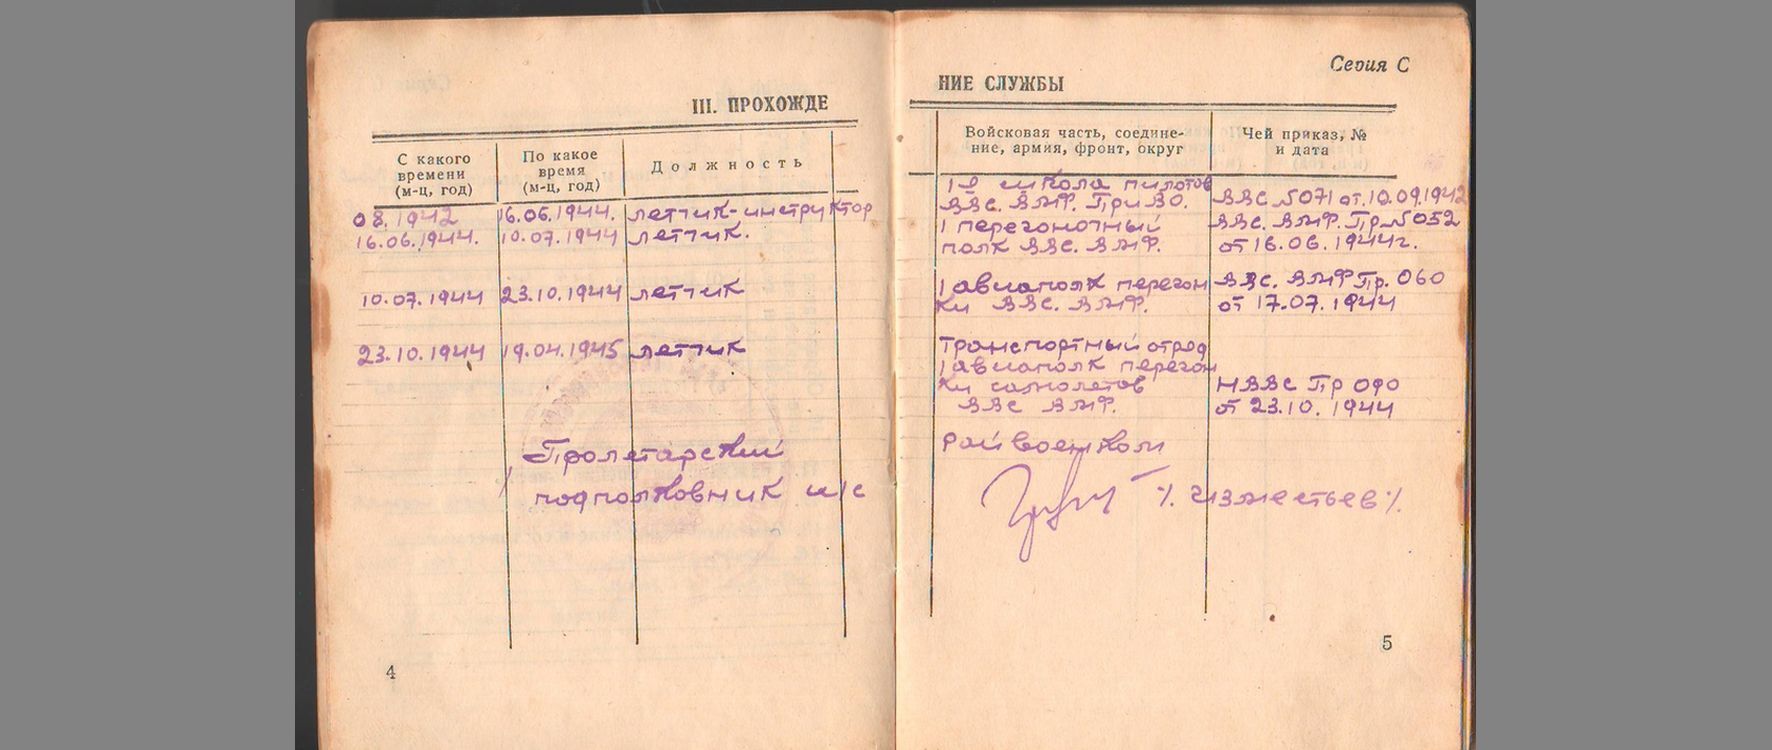 III. ПРОХОЖДЕ
С какого
времени
(м-ц, год)
По какое
время
(м-ц, год)
Должность
08.1942
16.06.1944.
летчик-инструктор
16.06.1944.
10.07.1944
летчик.
10.07.1944
23.10.1944
летчик
23.10.1944
19.04.1945
летчик
Пролетарский
подполковник и/с
4
Серия С
НИЕ СЛУЖБЫ
Войсковая часть, соедине-
ние, армия, фронт, округ
Чей приказ, №
и дата
1-я школа пилотов
ВВС. ВМФ. ПриВО.
ВВС №071 от 10.09.1942
1 перегоночный
полк ВВС. ВМФ.
ВВС. ВМФ. Пр№052
от 16.06.1944г.
1 авиаполк перегон
ки ВВС. ВМФ.
ВВС. ВМФ Пр. 060
от 17.07.1944
Транспортный отряд
1 авиаполк перегон
ки самолетов
ВВС ВМФ.
НВВС Пр 090
от 23.10.1944
райвоенком
5